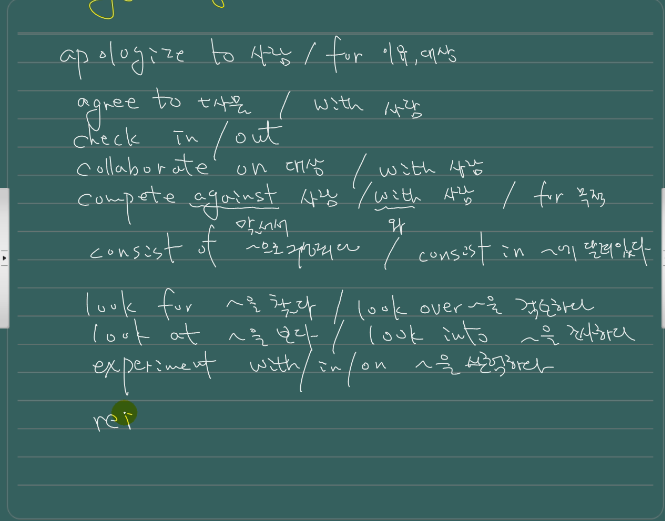 apologize to 사람 / for 이유, 대상
agree to 사물 / with 사람
check in / out
collaborate on 대상 / with 사람
compete against 사람 / with 사람 / for 목적
맞서서 와
consist of ~으로 구성되다 / consist in ~에 달려있다
look for ~을 찾다 / look over ~을 검토하다
look at ~을 보다 / look into ~을 조사하다
experiment with / in / on ~을 실험하다
rei